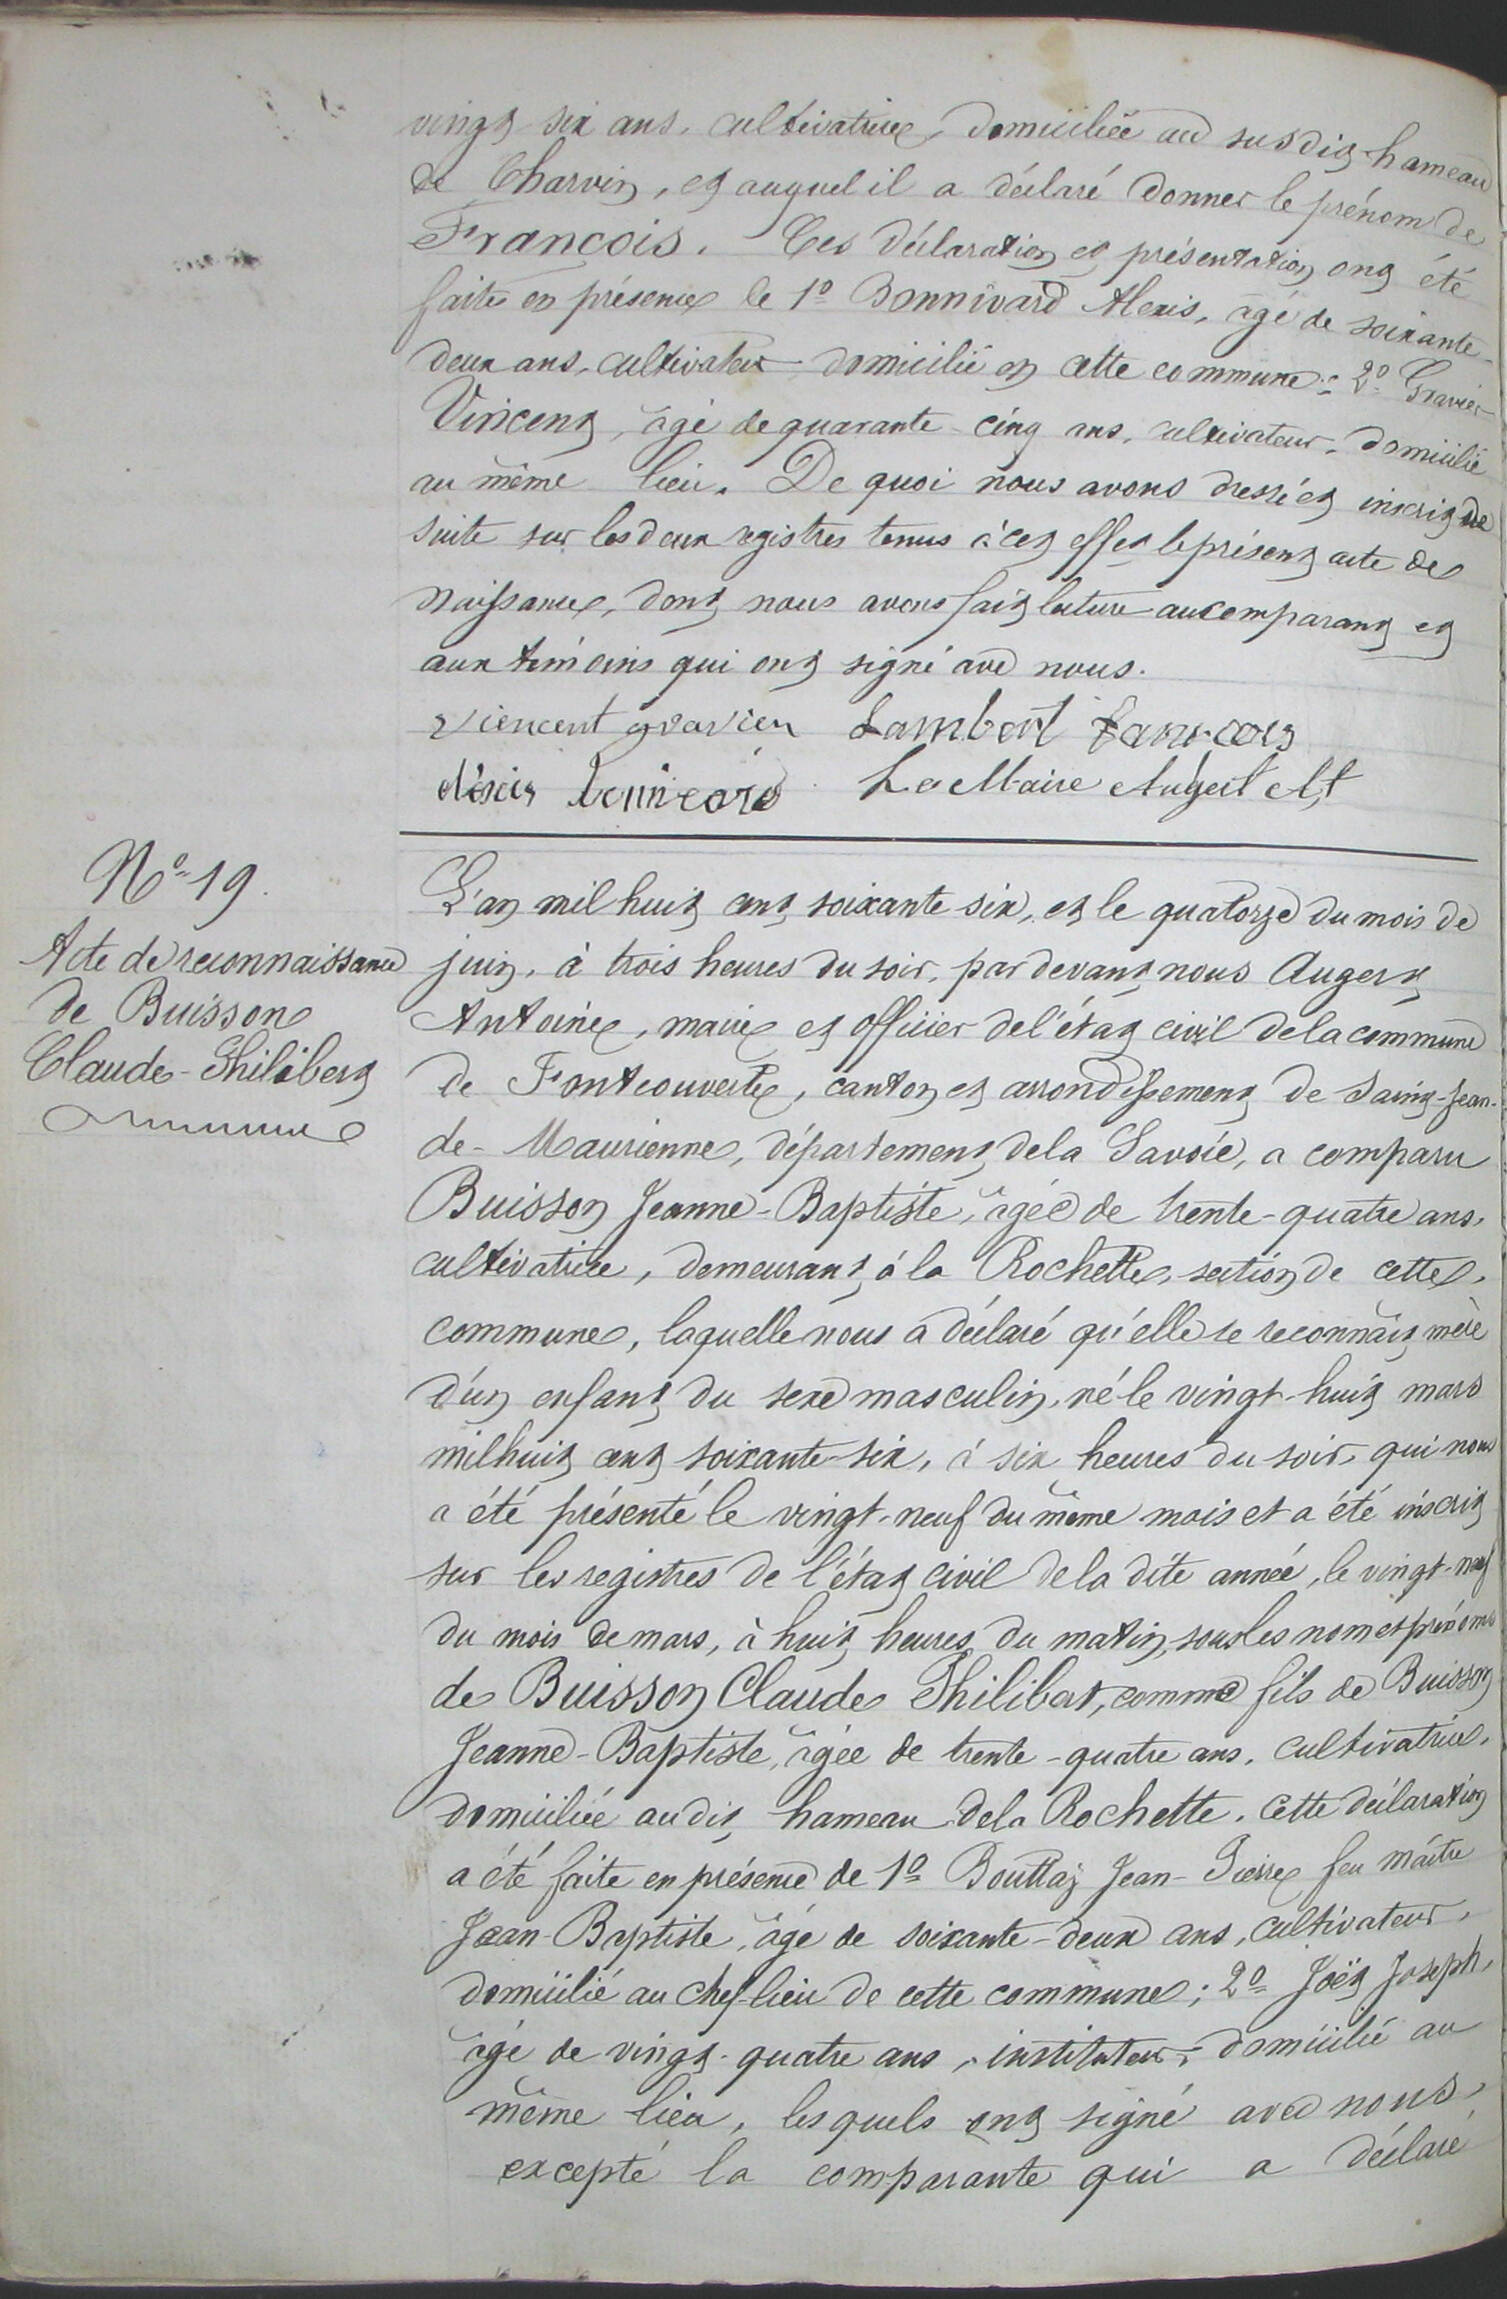 vingt-six ans, cultivatrice, domiciliée au susdit hameau
de Charvin, et auquel il a déclaré donner le prénom de
Francois. Ces déclaration et présentation ont été
faite en présence le 1º Bonnivard Alexis, âgé de soixante-
deux ans, cultivateur domicilié en cette commune; 2º Gravier
Vincent, âgé de quarante-cinq ans, cultivateur, domicilié
au même lieu. De quoi nous avons dressé et inscrit de
suite sur les deux registres tenus à cet effet le présent acte de
naissance, dont nous avons fait lecture au comparant et
aux témoins qui ont signé avec nous.
Viencent gravier Lambert francois
Le Maire Augert At
Nº 19.
Acte de reconnaissance
de Buisson
Claude-Philibert
L'an mil huit cent soixante six, et le quatorze du mois de
juin, à trois heures du soir, par devant nous Augert
Antoine, maire et officier de l'état civil de la commune
de Fontcouverte, canton et arrondissement de Saint-Jean-
de-Maurienne, département de la Savoie, a comparu
Buisson Jeanne-Baptiste, âgée de trente-quatre ans,
cultivatrice, demeurant à la Rochette, section de cette
commune, laquelle nous a déclaré qu'elle se reconnait mère
d'un enfant du sexe masculin, né le vingt-huit mars
mil huit cent soixante-six, à six heures du soir, qui nous
a été présenté le vingt-neuf du même mois et a été inscrit
sur les registres de l'état civil de la dite année, le vingt-neuf
du mois de mars, à huit heures du matin, sous les nom et prénoms
de Buisson Claude Philibert, comme fils de Buisson
Jeanne-Baptiste, âgée de trente-quatre ans, cultivatrice,
domiciliée au dit hameau de la Rochette. Cette déclaration
a été faite en présence de 1º Bouttaz Jean-Pierre feu maître
Jean-Baptiste, âgé de soixante-deux ans, cultivateur,
domicilié au chef-lieu de cette commune; 2º Joët Joseph,
âgé de vingt-quatre ans, instituteur, domicilié au
même lieu, lesquels ont signé avec nous,
excepté la comparante qui a déclaré